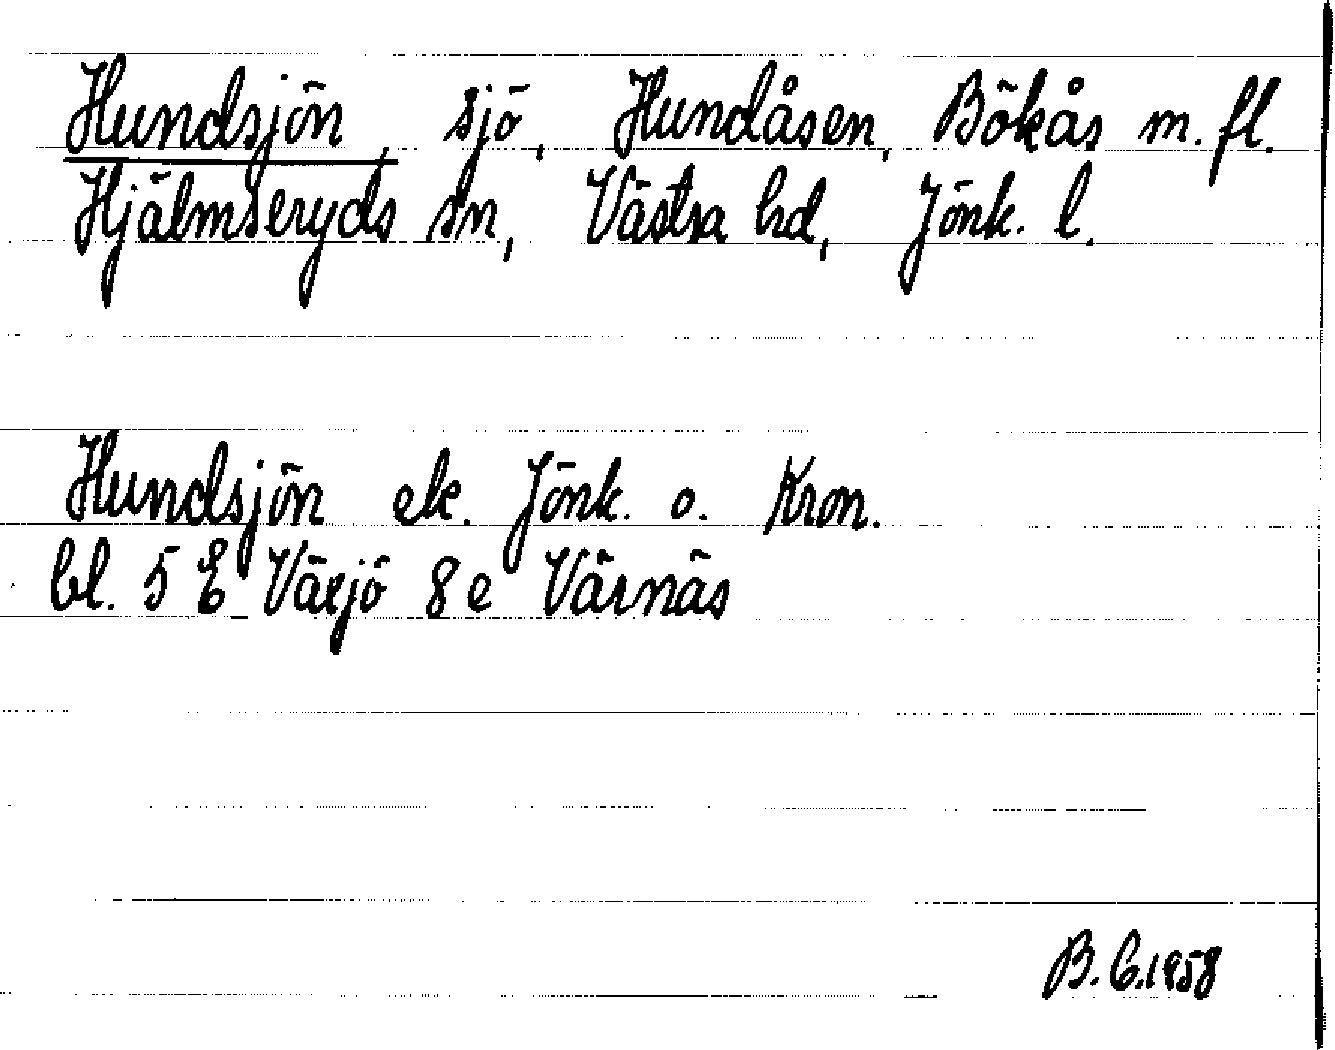 Hundsjön, sjö, Hundåsen, Bökås m. fl.
Hjälmseryds sn, Västra hd, Jönk. l.
Hundsjön ek. Jönk. o. Kron.
bl. 5 E Växjö 8 e Värnäs
B. C. 1958